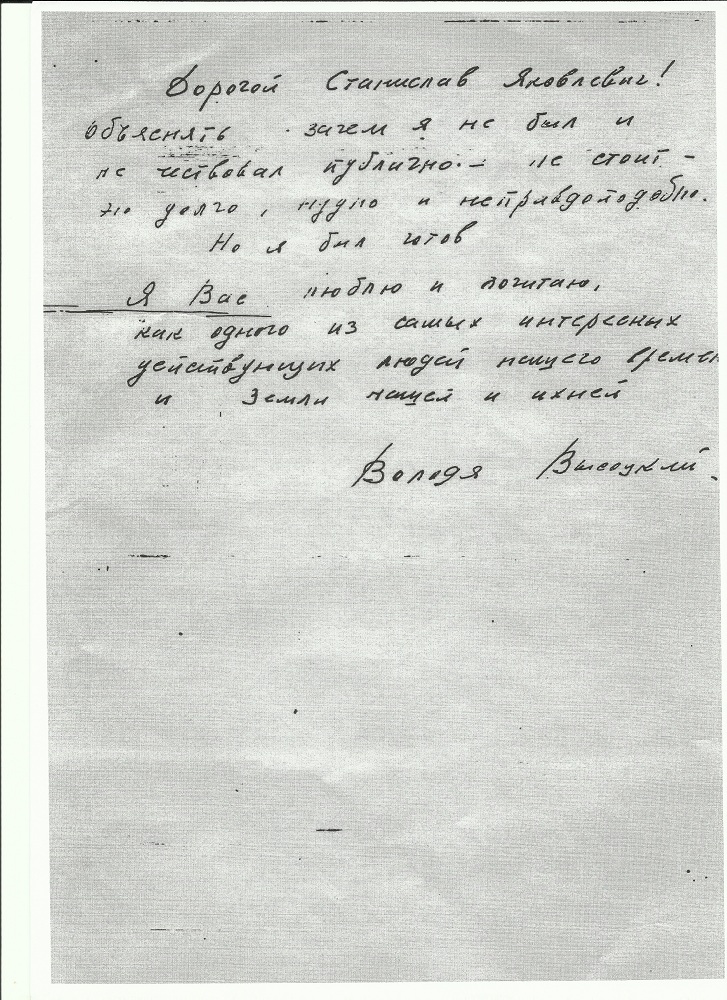 Дорогой Станислав Яковлевич!
Объяснять зачем я не был и
не чествовал публично – не стоит –
это долго, нудно и неправдоподобно.
Но я был готов
Я Вас люблю и почитаю,
как одного из самых интересных
действующих людей нашего времен
и Земли нашей и ихней
Володя Высоцкий.